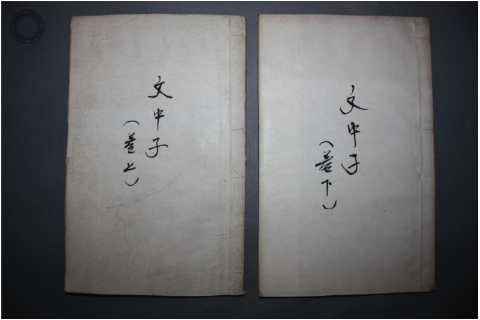 文中子
（卷上）
文中子
（卷下）